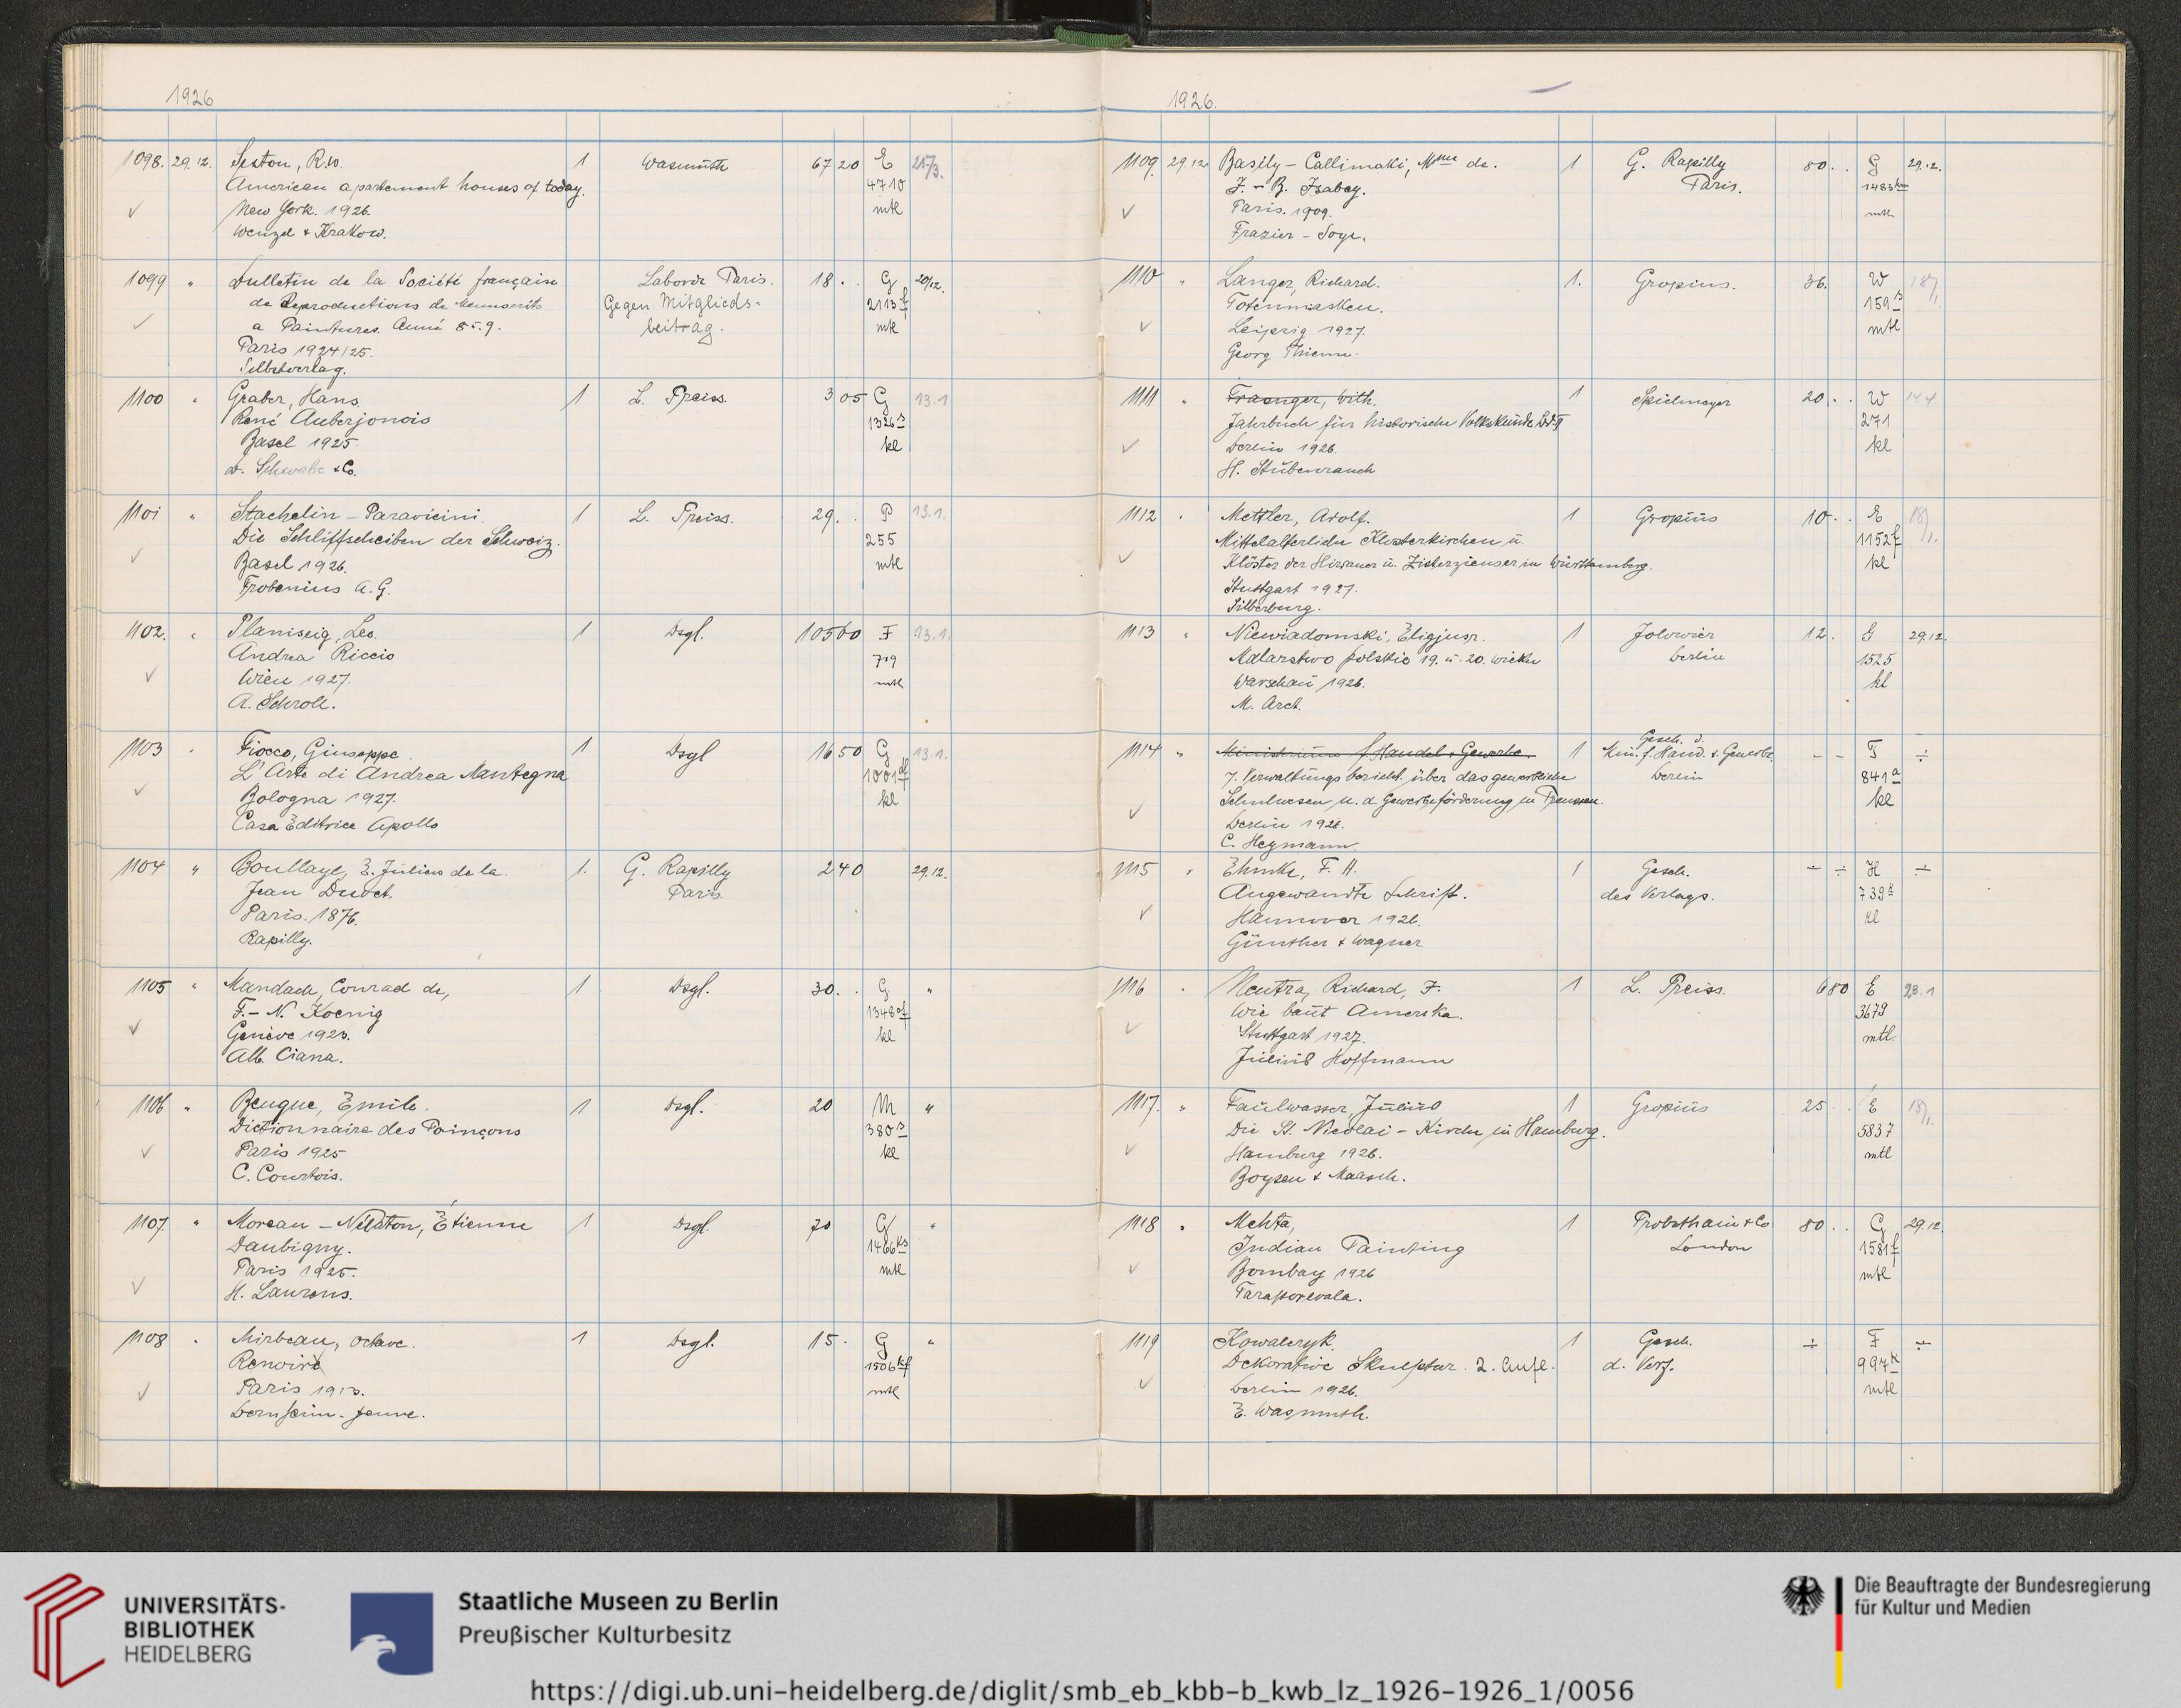 1926
1098. 29.12. Sexton, R.W. 1 Wasmuth 67 20 E 25/3.
American apartement houses of today. 4710
New York. 1926. mtl
Wenzel & Krakow.
1099 " Bulletin de la Société française Laborde Paris. 18. . G 20/12.
de Reproductions de Manuscrits Gegen Mitglieds- 2113 f
a Peintures. Année 8 5. 9. beitrag. mtl
Paris 1924/25.
Selbstverlag.
1100 " Graber, Hans 1 L. Preiss. 3 05 G 13.1
René Auberjonois 1326 s
Basel 1925 kl
B. Schwabe & Co.
1101 " Staehelin-Paravicini. 1 L. Preiss. 29. . P 13.1.
Die Schliffscheiben der Schweiz. 255
Basel 1926. mtl
Frobenius A.G.
1102. " Planiseig, Leo. 1 Dsgl. 105 60 F 13.1.
Andrea Riccio 719
Wien 1927. mtl
A. Schroll.
1103 " Fiocco, Giuseppe. 1 Dsgl 16 50 G 13.1.
L'Arte di Andrea Mantegna 1001 af
Bologna 1927. kl
Casa Editrice Apollo
1104 " Boullaye, E. Julien de la. 1. G. Rapilly 240 29.12.
Jean Duvet. Paris.
Paris. 1876.
Rapilly.
1105 " Mandach, Conrad de, 1 Dsgl. 30. . G "
F.-N. Koenig 1348 af
Genève 1923. kl
Alb. Ciana.
1106 " Beuque, Emile. 1 Dsgl. 20 M "
Dictionnaire des Poinçons 380 s
Paris 1925 kl
C. Courtois.
1107. " Moreau-Nélaton, Étienne 1 Dsgl. 70 G "
Daubigny. 1466 ks
Paris 1925. mtl
H. Laurens.
1108 " Mirbeau, Octave. 1 Dsgl. 15. G "
Renoire 1506 kf
Paris 1913. mtl
Bernheim-Jeune.
1926.
1109. 29.12. Basily-Callimaki, Mme de. 1 G. Rapilly 80. . G 29.12.
J.-B. Isabey. Paris. 1483 km
Paris. 1909. mtl
Frazier-Soye.
1110 " Langer, Richard. 1. Gropius. 36. W 18/1.
Totenmasken. 159 s
Leipzig 1927. mtl
Georg Thieme.
1111 " Fraenger, Wilh. 1 Spielmeyer 20. . W 14.4.
Jahrbuch für historische Volkskunde Bd. II 271
Berlin 1926. kl
H. Stubenrauch
1112 " Mettler, Adolf. 1 Gropius 10. . E 18/1.
Mittelalterliche Klosterkirchen u. 1152 f
Klöster der Hirsauer u. Zisterzienser in Württemberg. kl
Stuttgart 1927.
Silberburg.
1113 " Niewiadomski, Eligjusz. 1 Jolowicz 12. G 29.12.
Malarstwo polskie 19. u. 20. wieku Berlin 1525
Warschau 1926. kl
M. Arct.
1114 " Ministerium f. Handel & Gewerbe. 1 Gesch. d. Min. f. Hand. & Gewerbe. - - T ÷
7. Verwaltungsbericht über das gewerbliche Berlin 841 a
Schulwesen u. d. Gewerbeförderung in Preussen. kl
Berlin 1926.
C. Heymann.
1115 " Ehmke, F. H. 1 Gesch. ÷ ÷ H ÷
Angewandte Schrift. des Verlags. 739 k
Hannover 1926. kl
Günther & Wagner
1116 " Neutra, Richard, F. 1 L. Preiss. 6 80 E 28.1
Wie baut Amerika. 3679
Stuttgart 1927. mtl.
Julius Hoffmann
1117. " Faulwasser, Julius 1 Gropius 25. . E 18/1.
Die St. Nicolai-Kirche in Hamburg. 5837
Hamburg 1926. mtl
Boysen & Maasch.
1118 " Mehta, 1 Probsthain & Co 80. . G 29.12.
Indian Painting London 1581 f
Bombay 1926 mtl
Taraporevala.
1119 Kowalczyk. 1 Gesch. ÷ F ÷
Dekorative Skulptur. 2. Aufl. d. Verf. 997 k
Berlin 1926. mtl
E. Wasmuth.
UNIVERSITÄTS-
BIBLIOTHEK
HEIDELBERG
Staatliche Museen zu Berlin
Preußischer Kulturbesitz
Die Beauftragte der Bundesregierung
für Kultur und Medien
https://digi.ub.uni-heidelberg.de/diglit/smb_eb_kbb-b_kwb_lz_1926-1926_1/0056